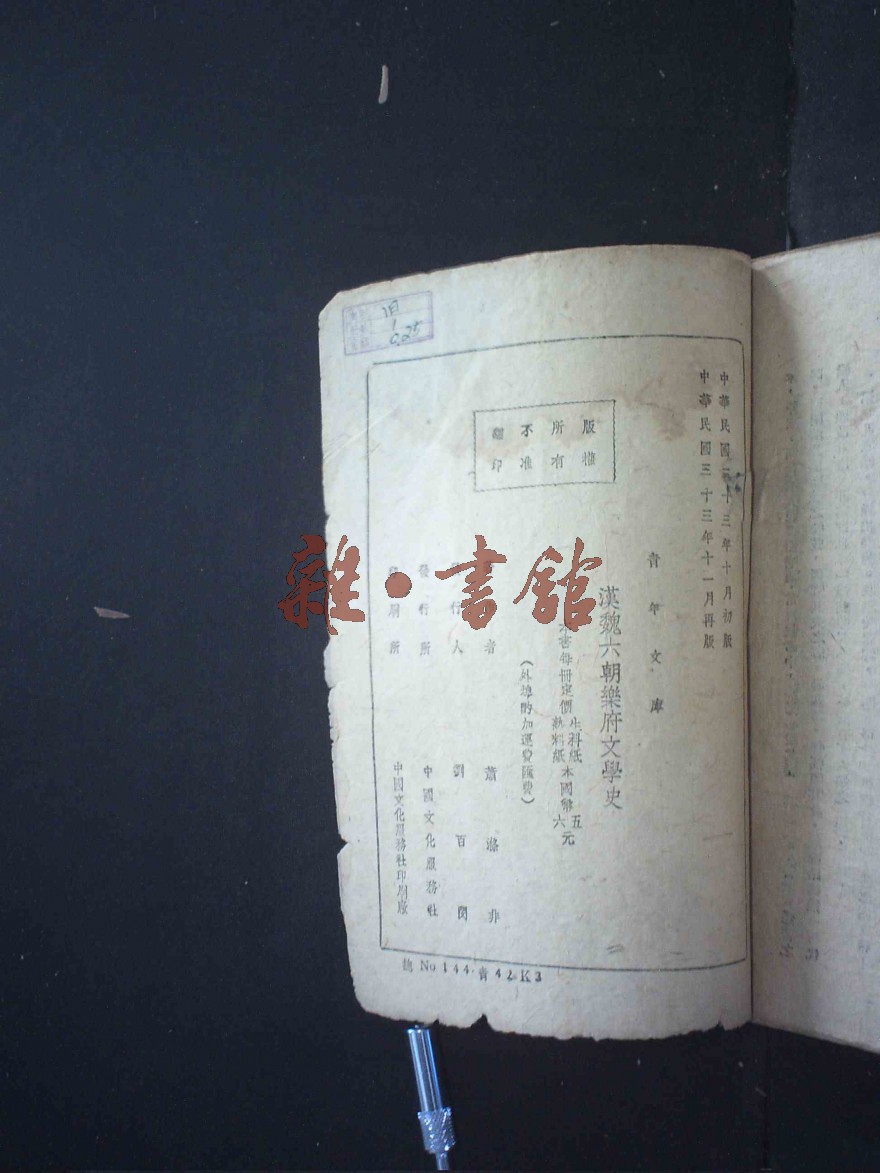 中華民國三十三年十月初版
中華民國三十三年十一月再版
青年文庫
漢魏六朝樂府文學史
本書每冊定價 生料紙 熟料紙 本國幣 五 六 元
（外埠酌加運費匯費）
版權
所有
不准
翻印
著者 蕭滌非
發行人 劉百閔
發行所 中國文化服務社
印刷所 中國文化服務社印刷廠
總 No 144·青 42·K3
旧
1
0.25
雜·書館